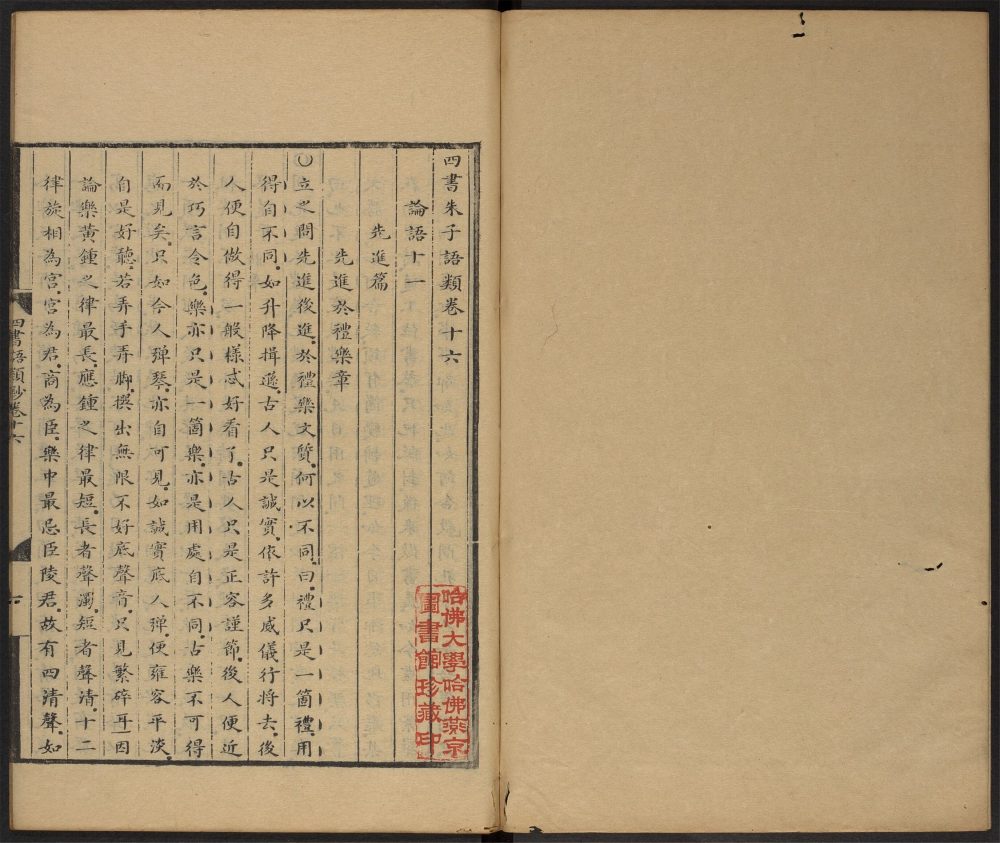 四書朱子語類卷十六
論語十一
先進篇
先進於禮樂章
〇立之問先進後進於禮樂文質何以不同曰禮只是一箇禮用
得自不同如升降揖遜古人只是誠實依許多威儀行將去後
人便自做得一般樣忒好看了古人只是正容謹節後人便近
於巧言令色樂亦只是一箇樂亦是用處自不同古樂不可得
而見矣只如今人彈琴亦自可見如誠實底人彈便雍容平淡
自是好聽若弄手弄脚撰出無限不好底聲音只見繁碎耳因
論樂黃鍾之律最長應鍾之律最短長者聲濁短者聲清十二
律旋相為宮宮為君商為臣樂中最忌臣陵君故有四清聲如
四書語類鈔卷十六
一
哈佛大學哈佛燕京
圖書館珍藏印